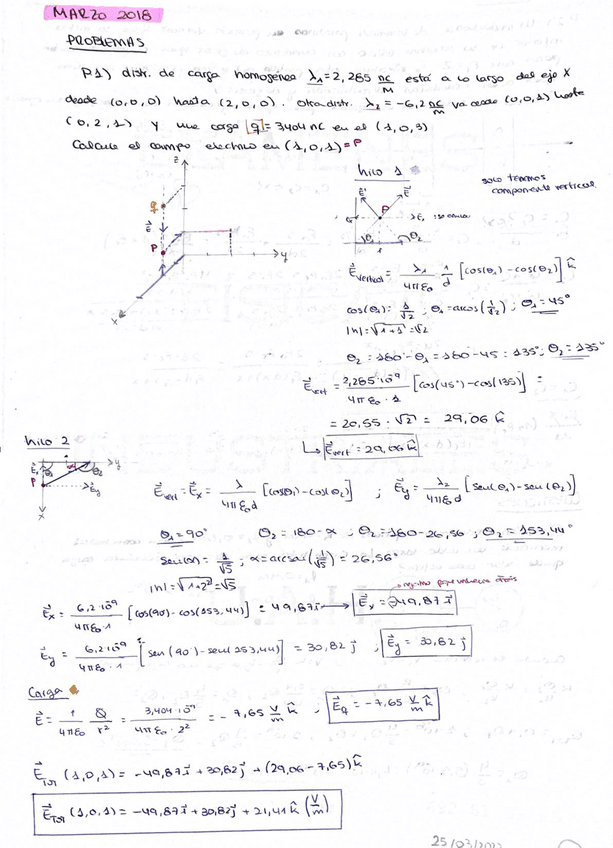 MARZO 2018
PROBLEMAS
P1) distr. de carga homogénea λ₁=2,285 nC/m está a lo largo del eje X
desde (0,0,0) hasta (2,0,0). Otra distr. λ₂ = -6,2 nC/m va desde (0,0,1) hasta
(0,2,1) y una carga |q|=3404 nC en el (1,0,3)
Calcule el campo electrico en (1,0,1)=P
hilo 1
solo tenemos
componente vertical
z
q
E⃗
P
y
x
E⃗' E⃗
P
θ₁ θ₂
1
E⃗vertical = λ₁/4πε₀ · 1/d [cos(θ₁) - cos(θ₂)] k̂
cos(θ₁) = 1/√2 ; θ₁ = arcos(1/√2) ; θ₁ = 45°
|h| = √1+1 = √2
θ₂ = 180 - θ₁ = 180 - 45 = 135° ; θ₂ = 135°
E⃗vert = 2,285·10⁻⁹/4πε₀ · 1 [cos(45°) - cos(135)] =
= 20,55 · √2 = 29,06 k̂
↳ E⃗vert = 29,06 k̂
hilo 2
y
E⃗x θ₁ α θ₂
P E⃗y
x
E⃗vert = E⃗x = λ/4πε₀d [cosθ₁) - cos(θ₂)] ; E⃗y = λ₂/4πε₀d [sen(θ₁) - sen(θ₂)]
θ₁ = 90° θ₂ = 180 - α ; θ₂ = 180 - 26,56 ; θ₂ = 153,44°
sen(α) = 1/√5 ; α = arcsen(1/√5) = 26,56°
|h| = √1+2² = √5
E⃗x = 6,2·10⁻⁹/4πε₀·1 [cos(90) - cos(153,44)] = 49,87 i → E⃗x = -49,87 i
E⃗y = 6,2·10⁻⁹/4πε₀·1 [sen(90) - sen(153,44)] = 30,82 j ; E⃗y = 30,82 j
Carga
E⃗ = 1/4πε₀ Q/r² = 3,404·10⁻⁹/4πε₀·2² = -7,65 V/m k̂ ; E⃗q = -7,65 V/m k̂
E⃗TOT (1,0,1) = -49,87 i + 30,82 j + (29,06 - 7,65) k̂
E⃗TOT (1,0,1) = -49,87 i + 30,82 j + 21,41 k̂ (V/m)